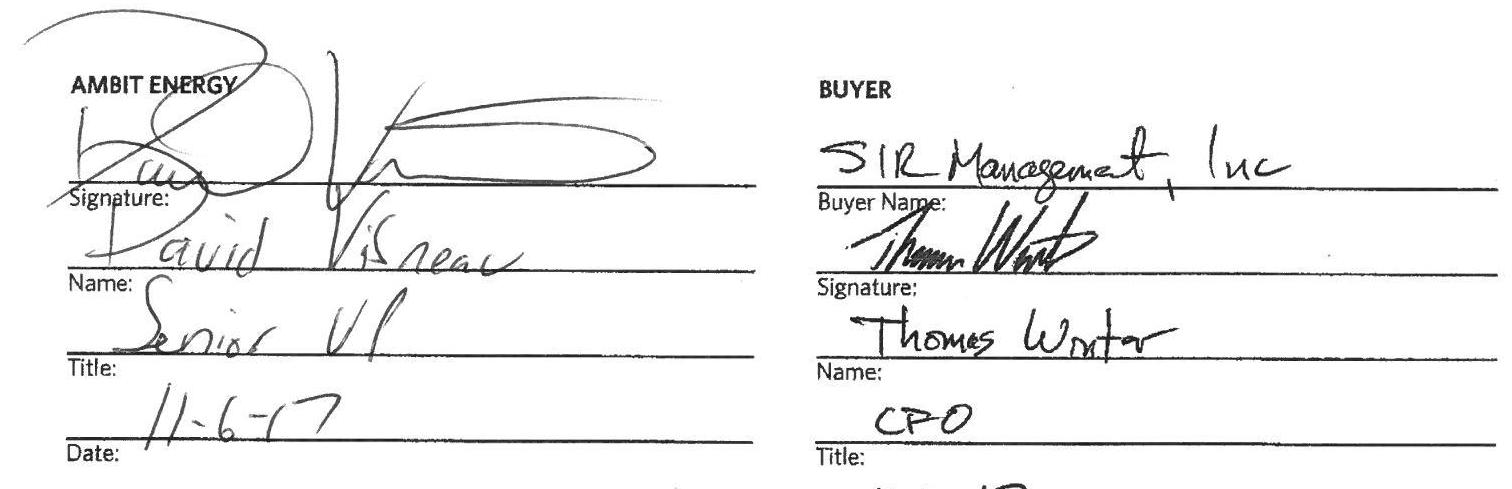 AMBIT ENERGY
Signature:
David Visneau
Name:
Senior VP
Title:
11-6-17
Date:
BUYER
SIR Management, Inc
Buyer Name:
Signature:
Thomas Winter
Name:
CFO
Title: